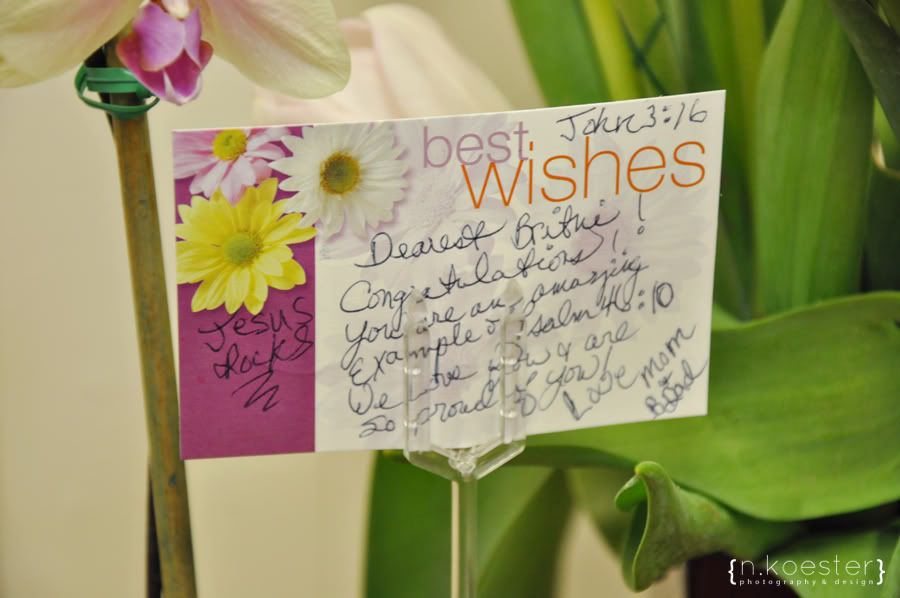 John 3:16
best
wishes
Dearest Brithie!
Congratulations!!
You are an amazing
Example of Psalm 46:10
We Love you & are
so proud of you!
Love Mom
& Dad
Jesus
Rocks
{n.koester}
photography & design